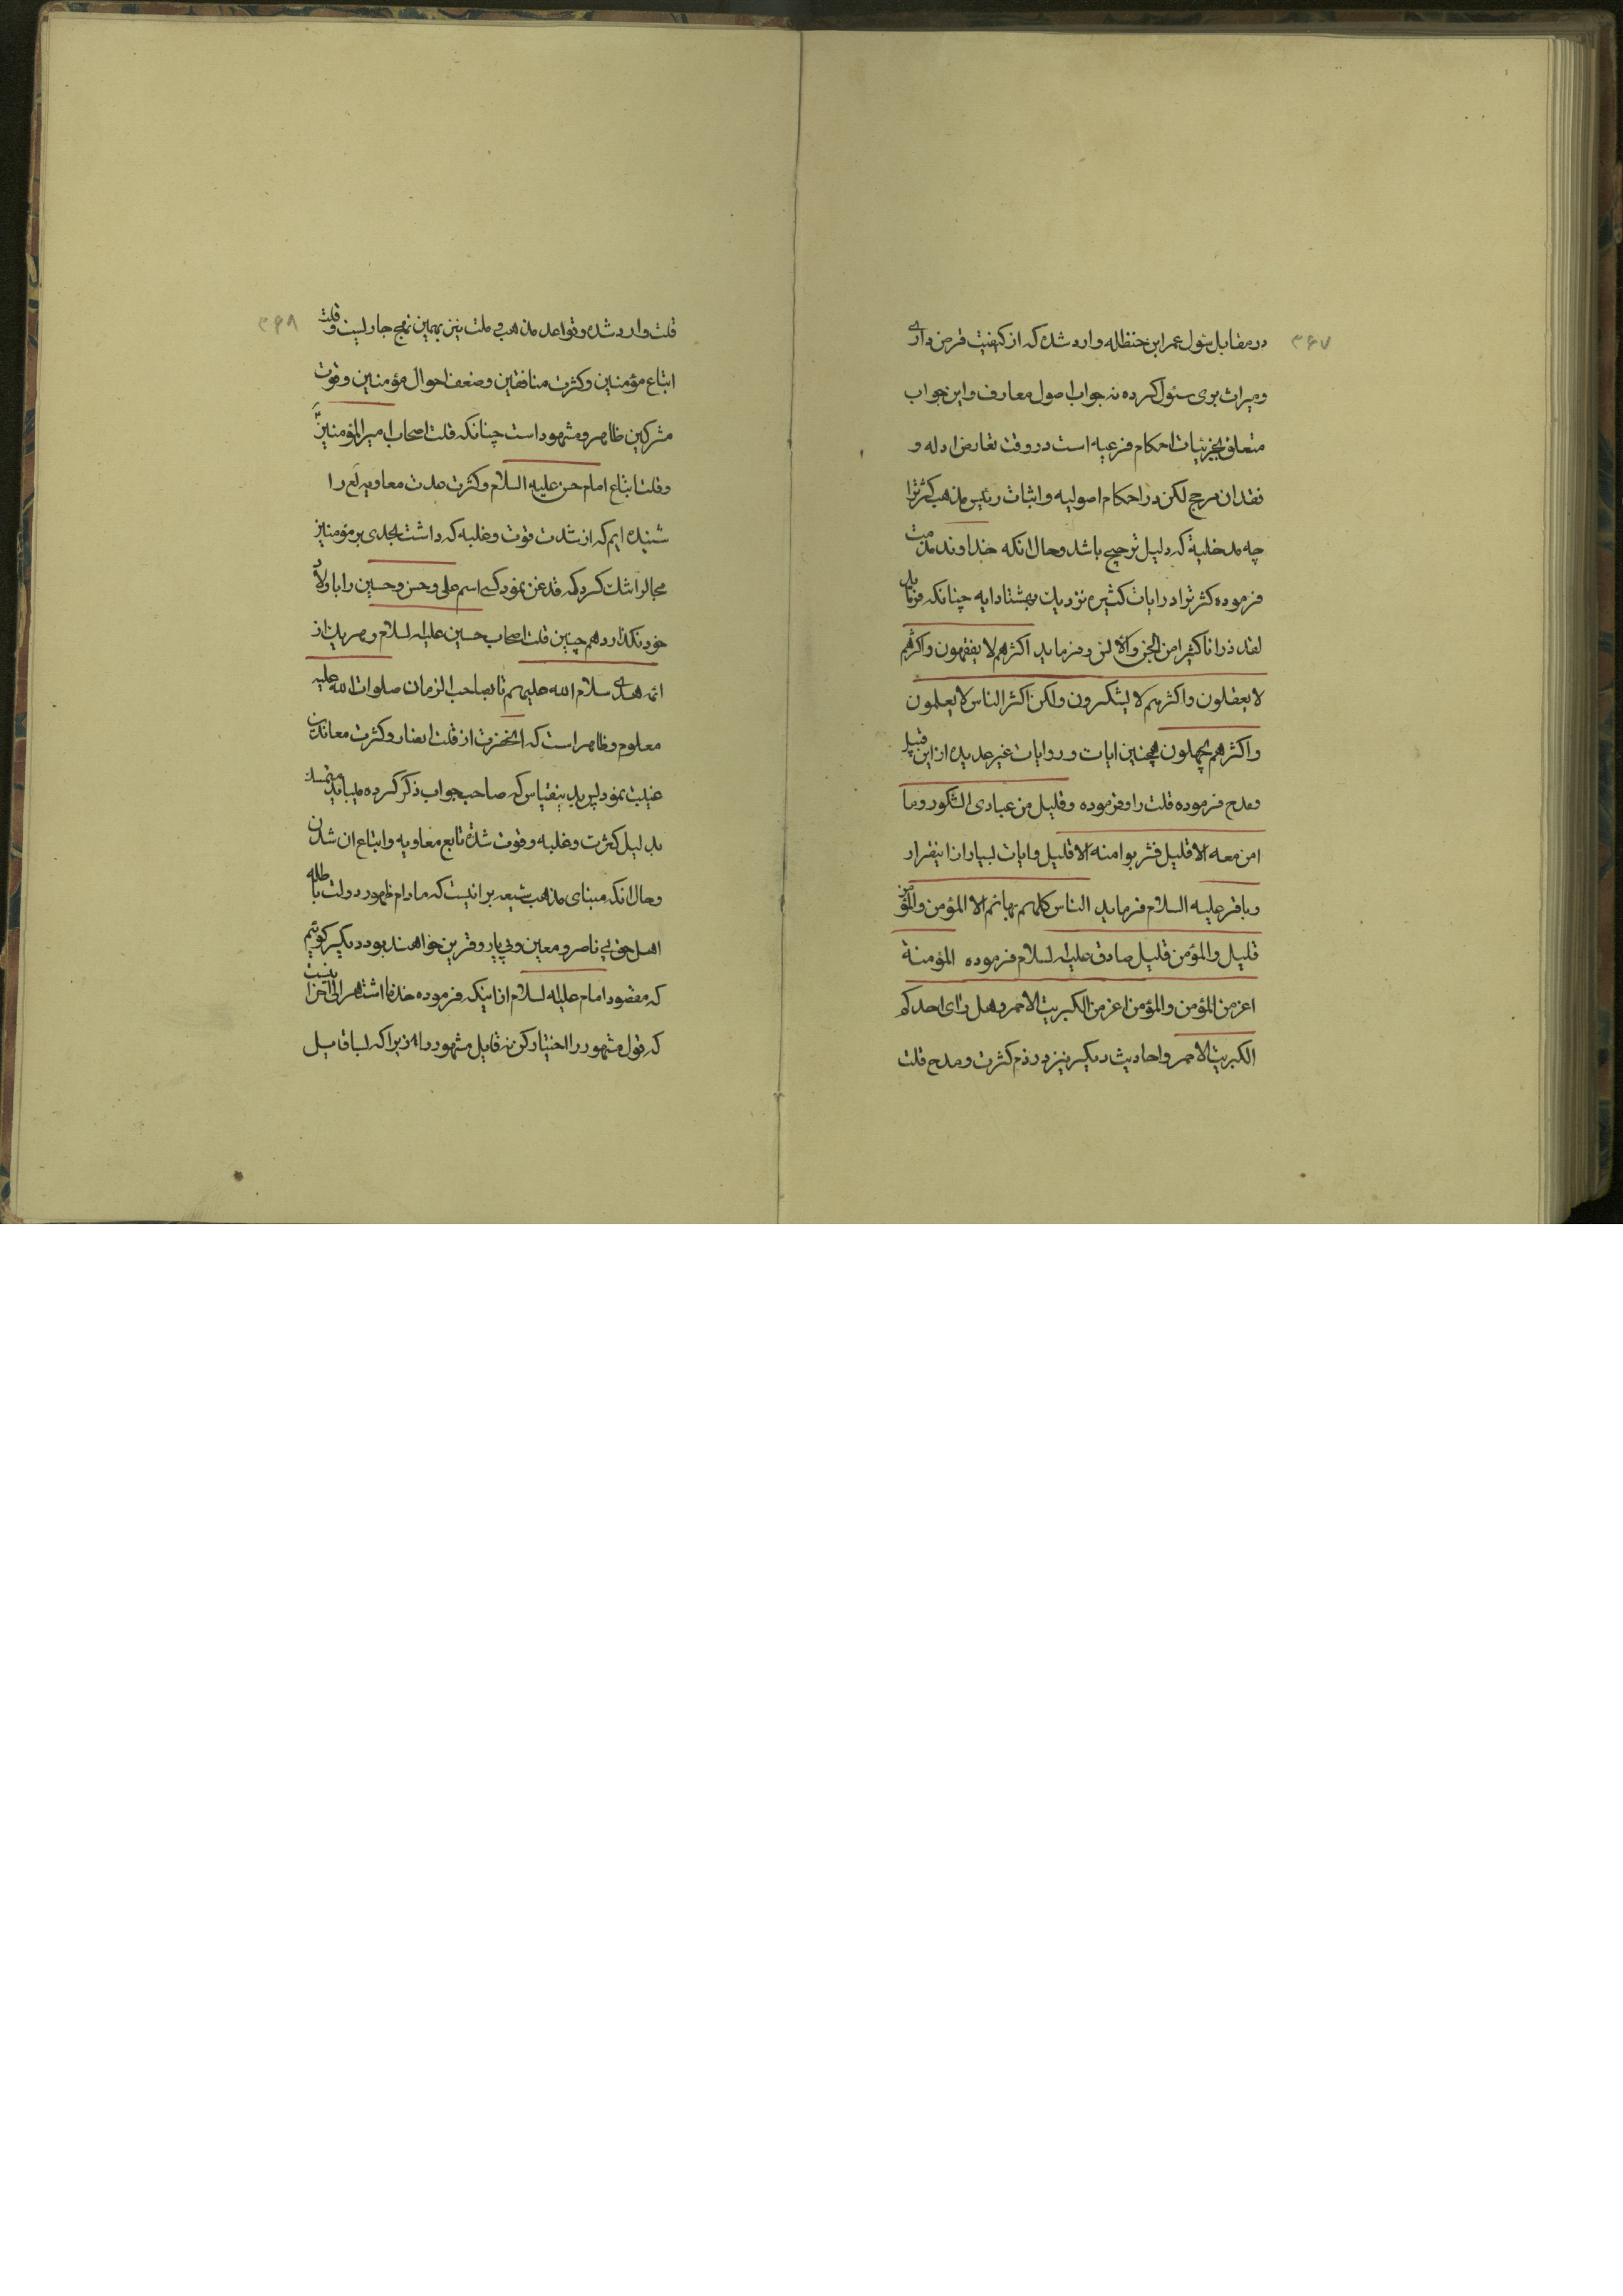 ۳۶۷
در مقابل سئول عمر ابن حنظله وارد شده که از کیفیت قرض داری
و میراث بری سئول کرده نه جواب اصول معارف و این جواب
متعلق بجزئیات احکام فرعیه است در وقت تعارض ادله و
فقدان مرجح لکن در احکام اصولیه و اثبات رئیس مذهب کثرترا
چه مدخلیة که دلیل ترجیح باشد و حال انکه خداوند مذمت
فرموده کثرترا در ایات کثیره نزدیك بهشتاد ایه چنانکه فرماید
لقد ذرانا کثیرا من الجن والانس و فرماید اکثرهم لا یفقهون واکثرهم
لا یعقلون واکثرهم لا یشکرون ولکن اکثر الناس لا یعلمون
واکثرهم یجهلون همچنین ایات و روایات غیر عدیده از این قبیل
ومدح فرموده قلت را و فرموده وقلیل من عبادی الشکور وما
امن معه الا قلیل فشربوا منه الا قلیل وایات بسیار از اینقرار
و باقر علیه السلام فرماید الناس کلهم بهائم الا المؤمن والمؤمن
قلیل والمؤمن قلیل صادق علیه السلام فرموده المؤمنة
اعز من المؤمن والمؤمن اعز من الکبریت الاحمر وهل رای احدکم
الکبریت الاحمر واحادیث دیکر نیز در ذم کثرت و مدح قلت
۳۶۸
قلت وارد شده و قواعد مذهب و ملت نیز بهمین نهج جاریست و قلت
اتباع مؤمنین و کثرت منافقین و ضعف احوال مؤمنین و قوت
مشرکین ظاهر و مشهود است چنانکه قلت اصحاب امیرالمؤمنین
و قلت اتباع امام حسن علیه السلام و کثرت مدت معاویه لع را
شنیده ایم که از شدت قوت و غلبه که داشت بحدی بر مؤمنین
مجالرا تنك کرد که قدغن نمود کسی اسم علی و حسن و حسین را با ولاد
خود نکذارد همچنین قلت اصحاب حسین علیه السلام و هر یك از
ائمه هدی سلام الله علیهم تا بصاحب الزمان صلوات الله علیه
معلوم و ظاهر است که انحضرت از قلت انصار و کثرت معاندین
غیبت نمود پس بدینقیاس که صاحب جواب ذکر کرده میباید متمسك
بدلیل کثرت و غلبه و قوت شده تابع معاویه و اتباع ان شدن
و حال انکه مبنای مذهب شیعه بر انیست که مادام ظهور دولت باطله
اهل حق بی ناصر و معین و بی یار و قرین خواهند بود دیکر کوئیم
که مقصود امام علیه السلام از اینکه فرموده خذ ما اشتهر الی اخر اینست
که قول مشهور را اختیار کن نه قایل مشهور را زیرا که بسا قایل